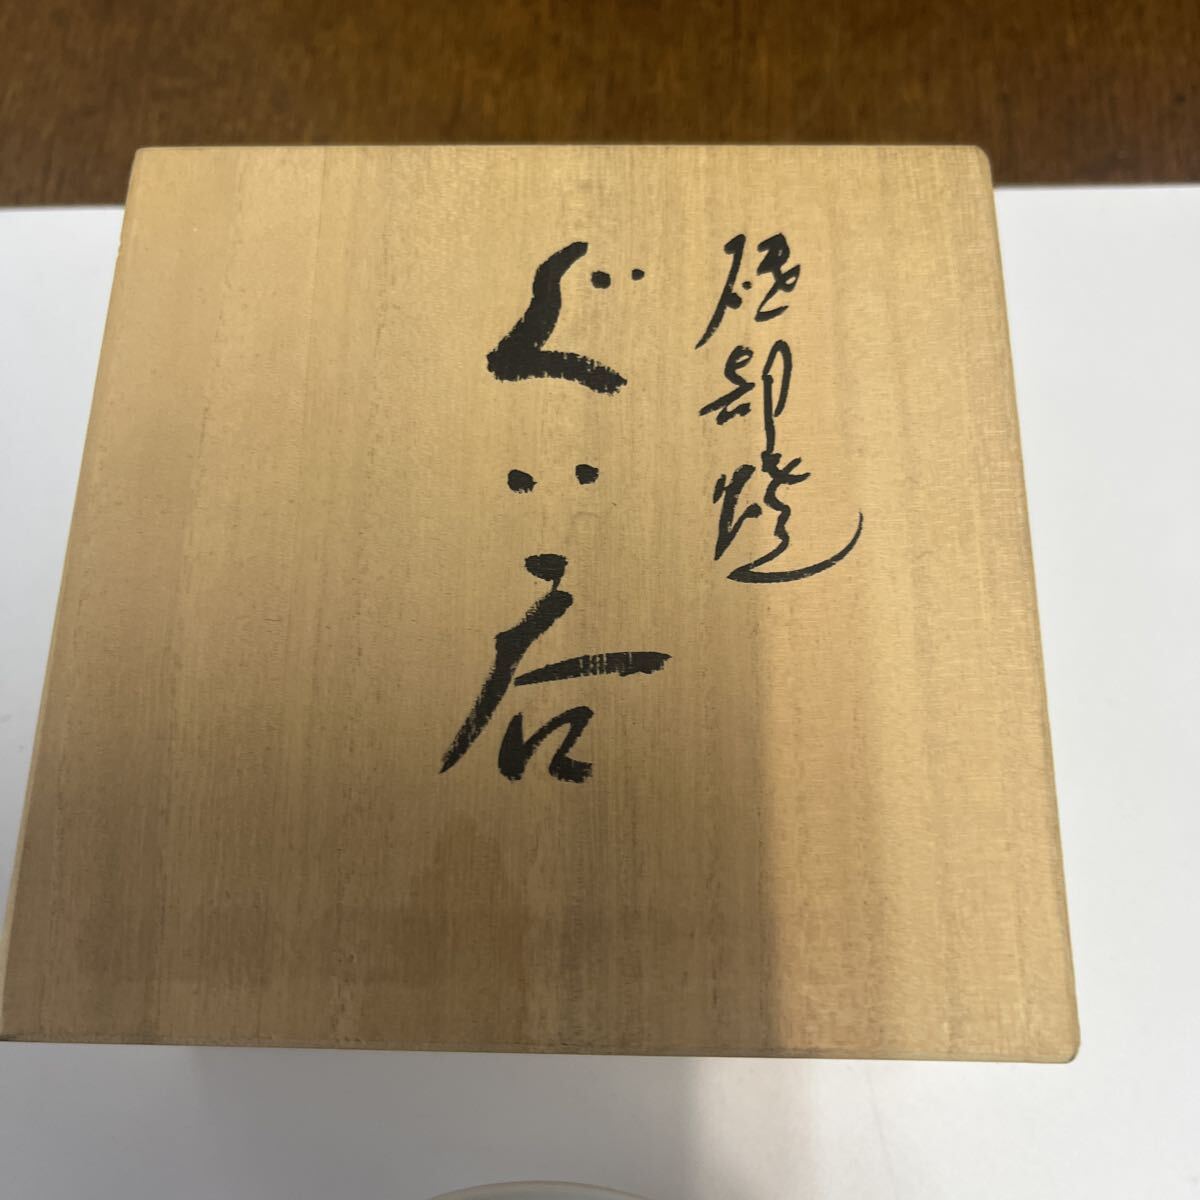 砥部焼
ぐい呑